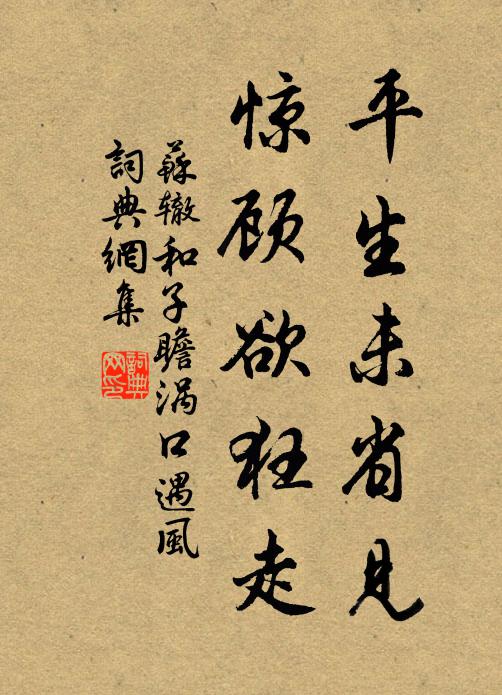 平生未省见
惊顾欲狂走
蘇辙和子瞻涡口遇風
詞典網集
詞典网印